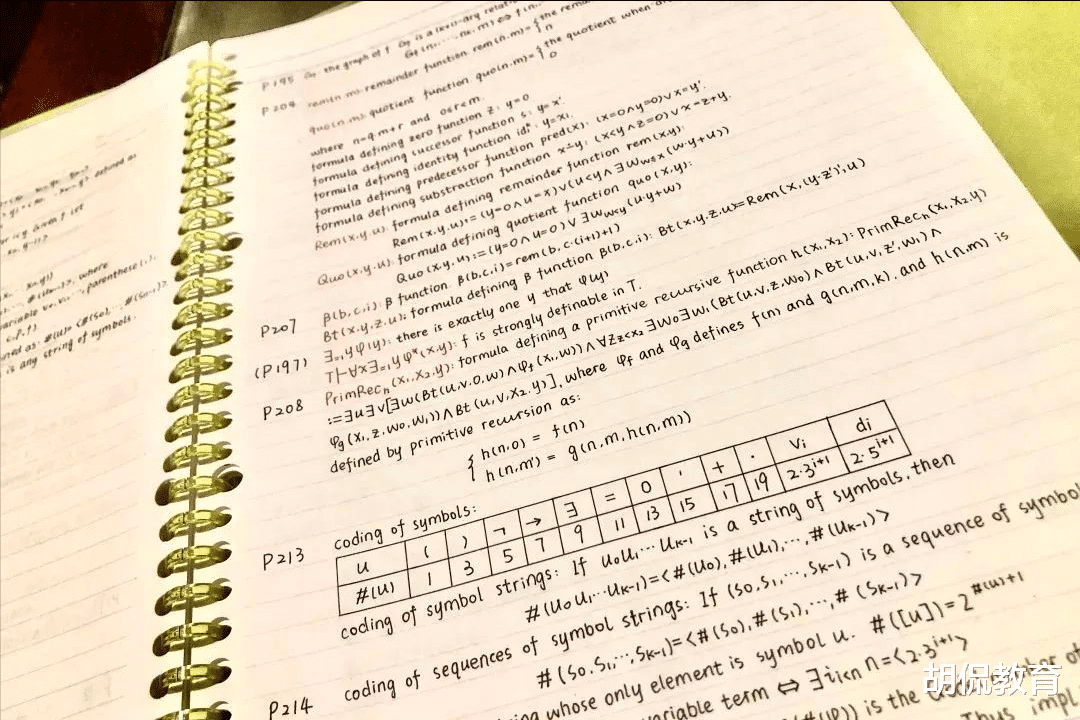 P195 the graph of f
P204 rem(n.m): remainder function. rem(n.m)={
quo(n.m): quotient function. quo(n.m)={ the quotient when
where n=q·m+r and 0≤r<m.
formula defining zero function z: y=0
formula defining successor function s: y=x'.
formula defining identity function
formula defining predecessor function pred(x): (x=0∧y=0)∨x=y'.
formula defining substraction function x∸y: (x<y∧z=0)∨x=z+y.
Rem(x.y.u): formula defining remainder function rem(x.y):
Rem(x.y.u):=(y=0∧u=x)∨(u<y∧∃w w≤x (w·y+u))
Quo(x.y.u): formula defining quotient function quo(x.y):
Quo(x.y.u):=(y=0∧u=0)∨∃w w<y (u·y+w)
P207 β(b,c,i): β function. β(b,c,i)=rem(b,c·(i+1)+1)
Bt(x.y.z.u): formula defining β function β(b,c,i): Bt(x.y.z.u)=Rem(x,(y·z')',u)
(P197) ∃=1yφ(y): there is exactly one y that φ(y)
T⊢∀x∃=1yφ*(x.y): f is strongly definable in T.
P208 PrimRech(x1.x2.y): formula defining a primitive recursive function h(x1,x2): PrimRech(x1,x2.y)
:=∃u∃v[∃w(Bt(u.v.0,w)∧φf(x1,w))∧∀z z<x2∃w0∃w1(Bt(u.v.z.w0)∧Bt(u.v.z',w1)∧
φg(x1,z,w0,w1))∧Bt(u,v,x2.y)], where φf and φg defines f(n) and g(n,m,k), and h(n,m) is
defined by primitive recursion as:
{ h(n,0) = f(n)
h(n,m') = g(n,m,h(n,m))
P213 coding of symbols:
u ( ) ¬ → ∃ = 0 ' + · vi di
#(u) 1 3 5 7 9 11 13 15 17 19 2·3^i+1 2·5^i+1
coding of symbol strings: If u0u1…uk-1 is a string of symbols, then
#(u0u1…uk-1)=<#(u0),#(u1),…,#(uk-1)>
coding of sequences of symbol strings: If (s0,s1,…,sk-1) is a sequence of symbol
#(s0,s1,…,sk-1)=<#(s0),#(s1),…,#(sk-1)>
P214 whose only element is symbol u. #([u])=2^#(u)+1
variable term ⇔ ∃i i<n n=<2·3^i+1>
is the
Thus
胡侃教育